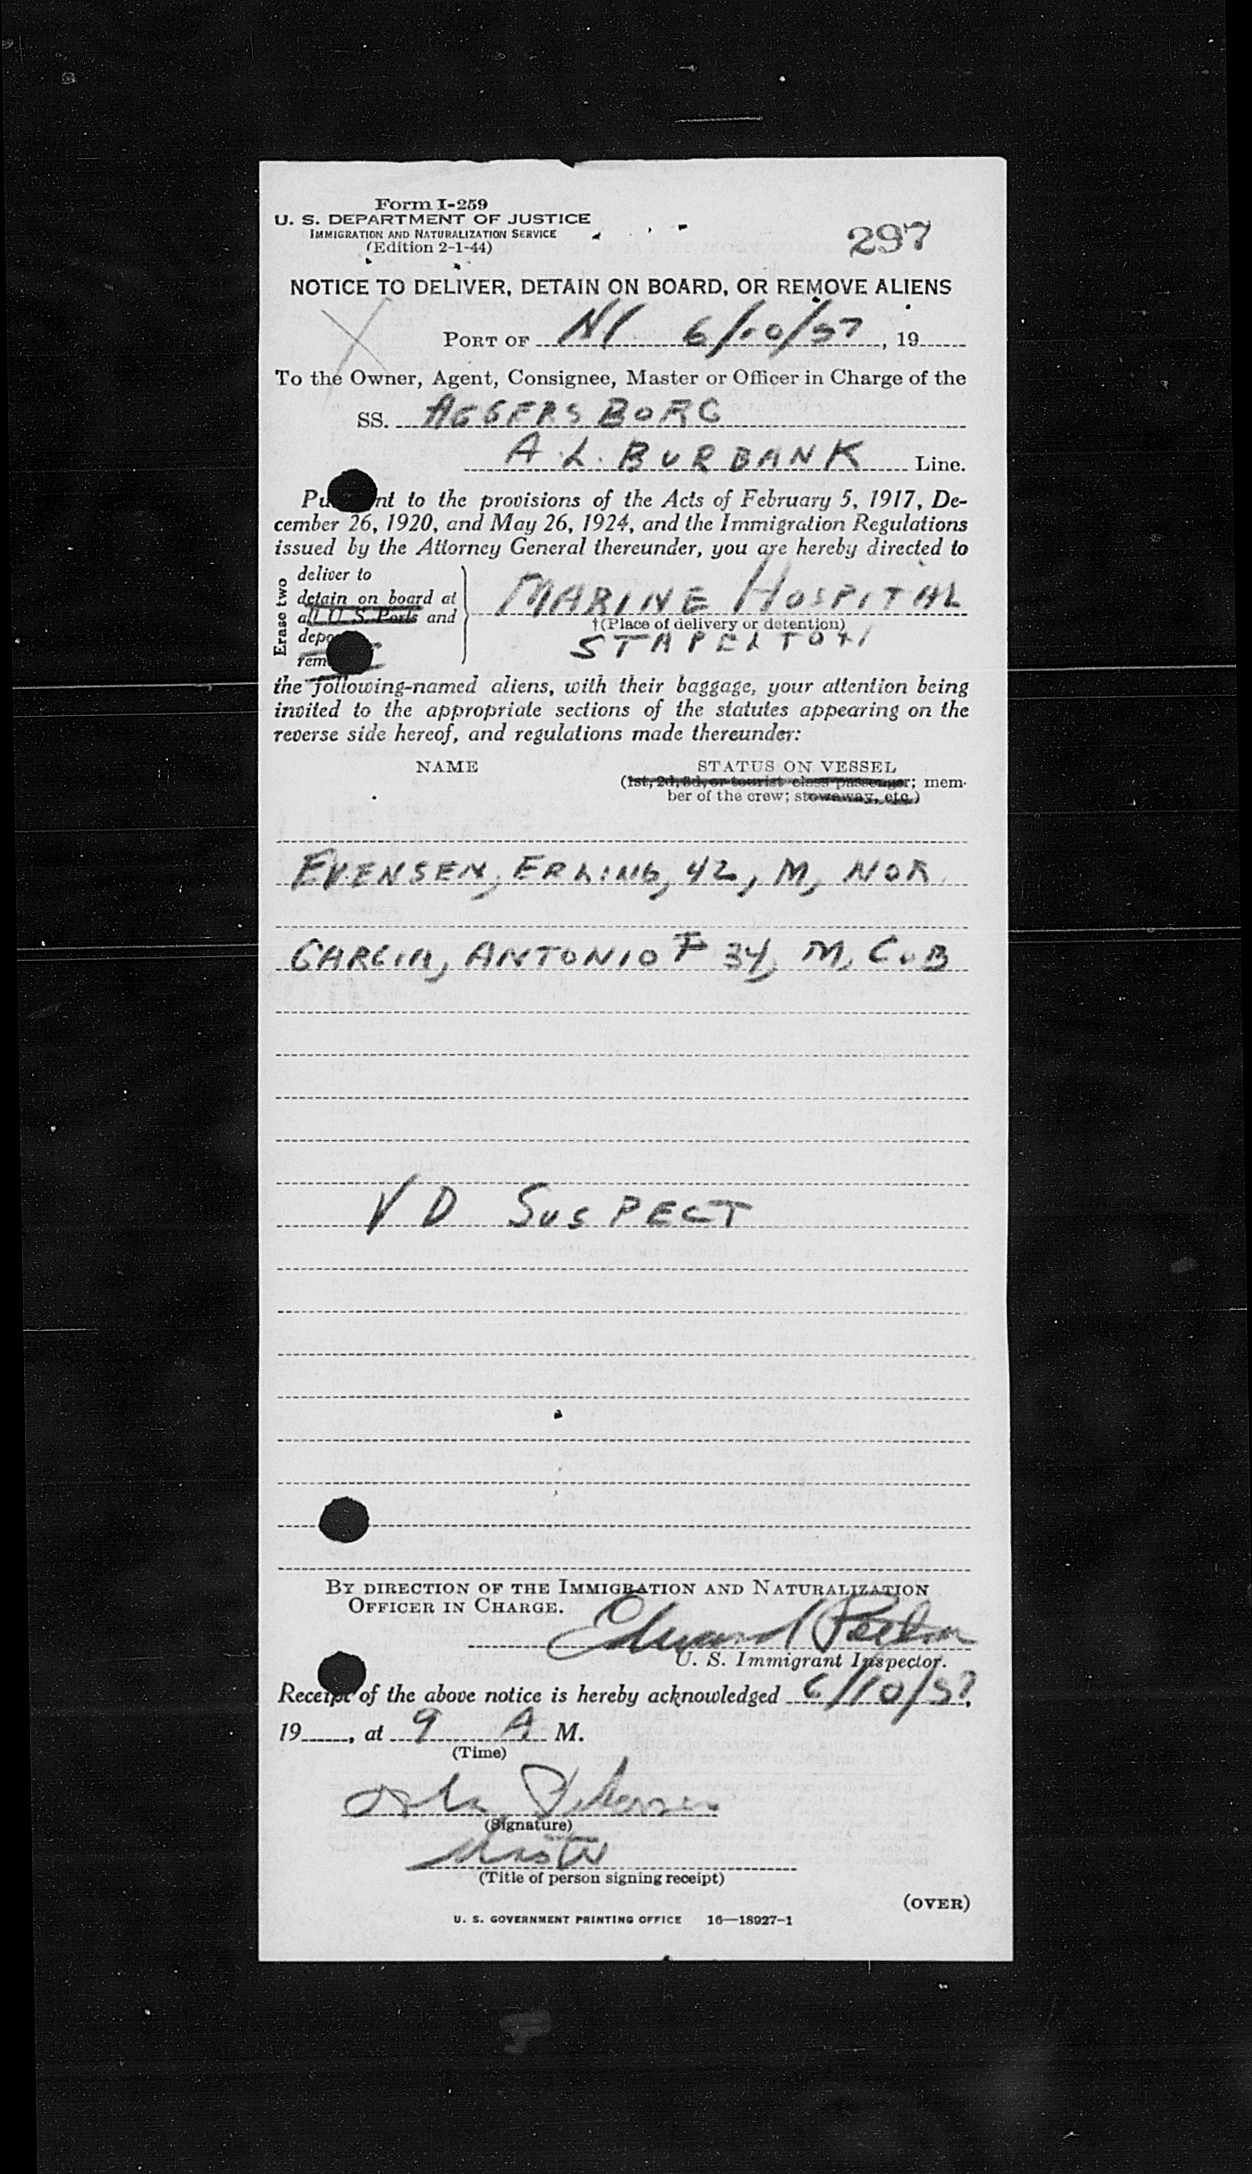 Form I-259
U. S. DEPARTMENT OF JUSTICE
IMMIGRATION AND NATURALIZATION SERVICE
(Edition 2-1-44)
297
NOTICE TO DELIVER, DETAIN ON BOARD, OR REMOVE ALIENS
PORT OF NY 6/10/57, 19
To the Owner, Agent, Consignee, Master or Officer in Charge of the
SS. AGGERSBORG
A. L. BURBANK Line.
Pu nt to the provisions of the Acts of February 5, 1917, De-
cember 26, 1920, and May 26, 1924, and the Immigration Regulations
issued by the Attorney General thereunder, you are hereby directed to
Erase two
deliver to
detain on board at
all U. S. Ports and
depo
rem
MARINE HOSPITAL
†(Place of delivery or detention)
STAPELTON
the following-named aliens, with their baggage, your attention being
invited to the appropriate sections of the statutes appearing on the
reverse side hereof, and regulations made thereunder:
NAME STATUS ON VESSEL
(1st, 2d, 3d, or tourist class passenger; mem-
ber of the crew; stowaway, etc.)
EVENSEN, ERLING, 42, M, NOR
GARCIA, ANTONIO F 34, M, CUB
VD SUSPECT
BY DIRECTION OF THE IMMIGRATION AND NATURALIZATION
OFFICER IN CHARGE.
Edward
U. S. Immigrant Inspector.
Receipt of the above notice is hereby acknowledged 6/10/57,
19, at 9 A M.
(Time)
(Signature)
Master
(Title of person signing receipt)
(OVER)
U. S. GOVERNMENT PRINTING OFFICE 16—18927-1